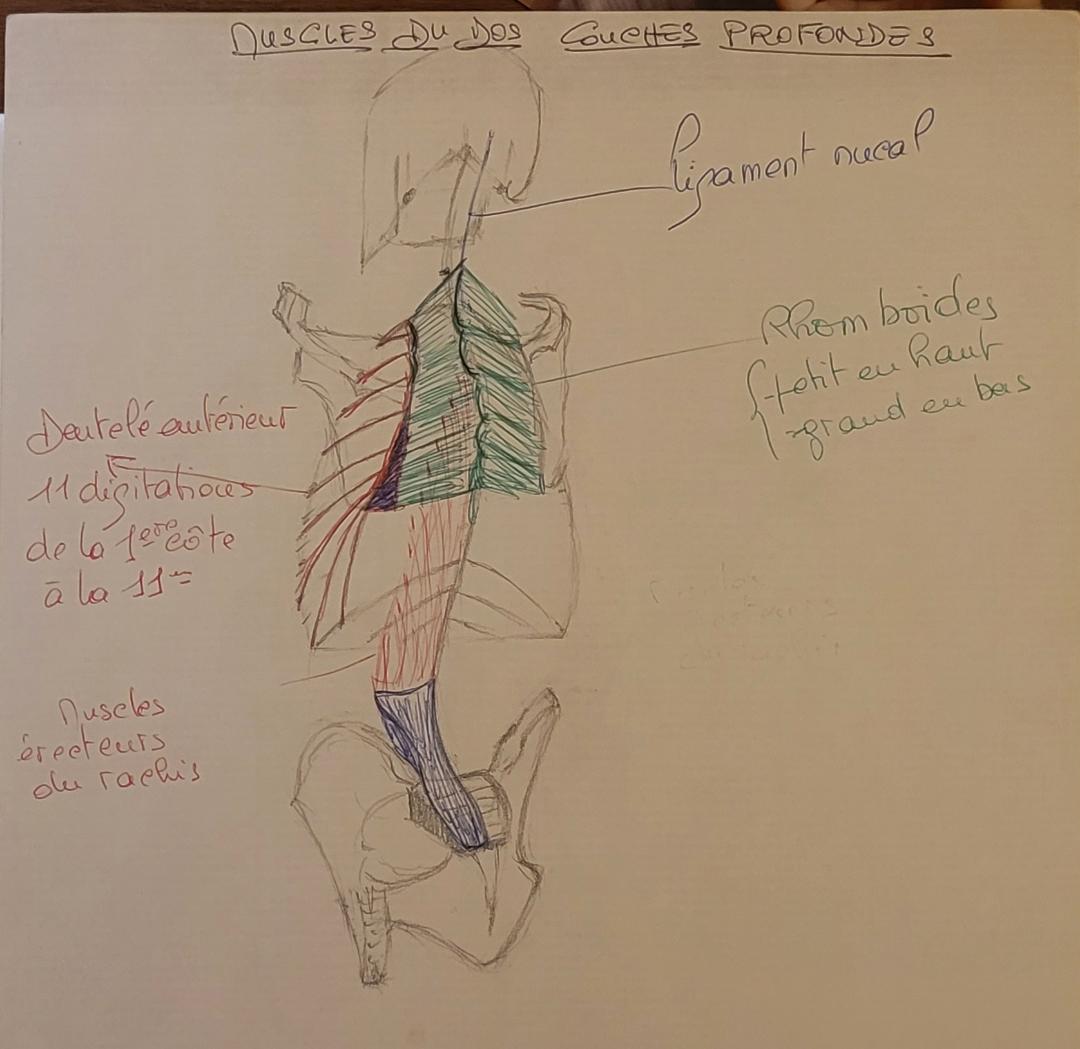 MUSCLES DU DOS COUCHES PROFONDES
ligament nucal
Rhomboides
- petit en haut
- grand en bas
Dentelé antérieur
11 digitations
de la 1ere côte
à la 11e
Muscles
érecteurs
du rachis